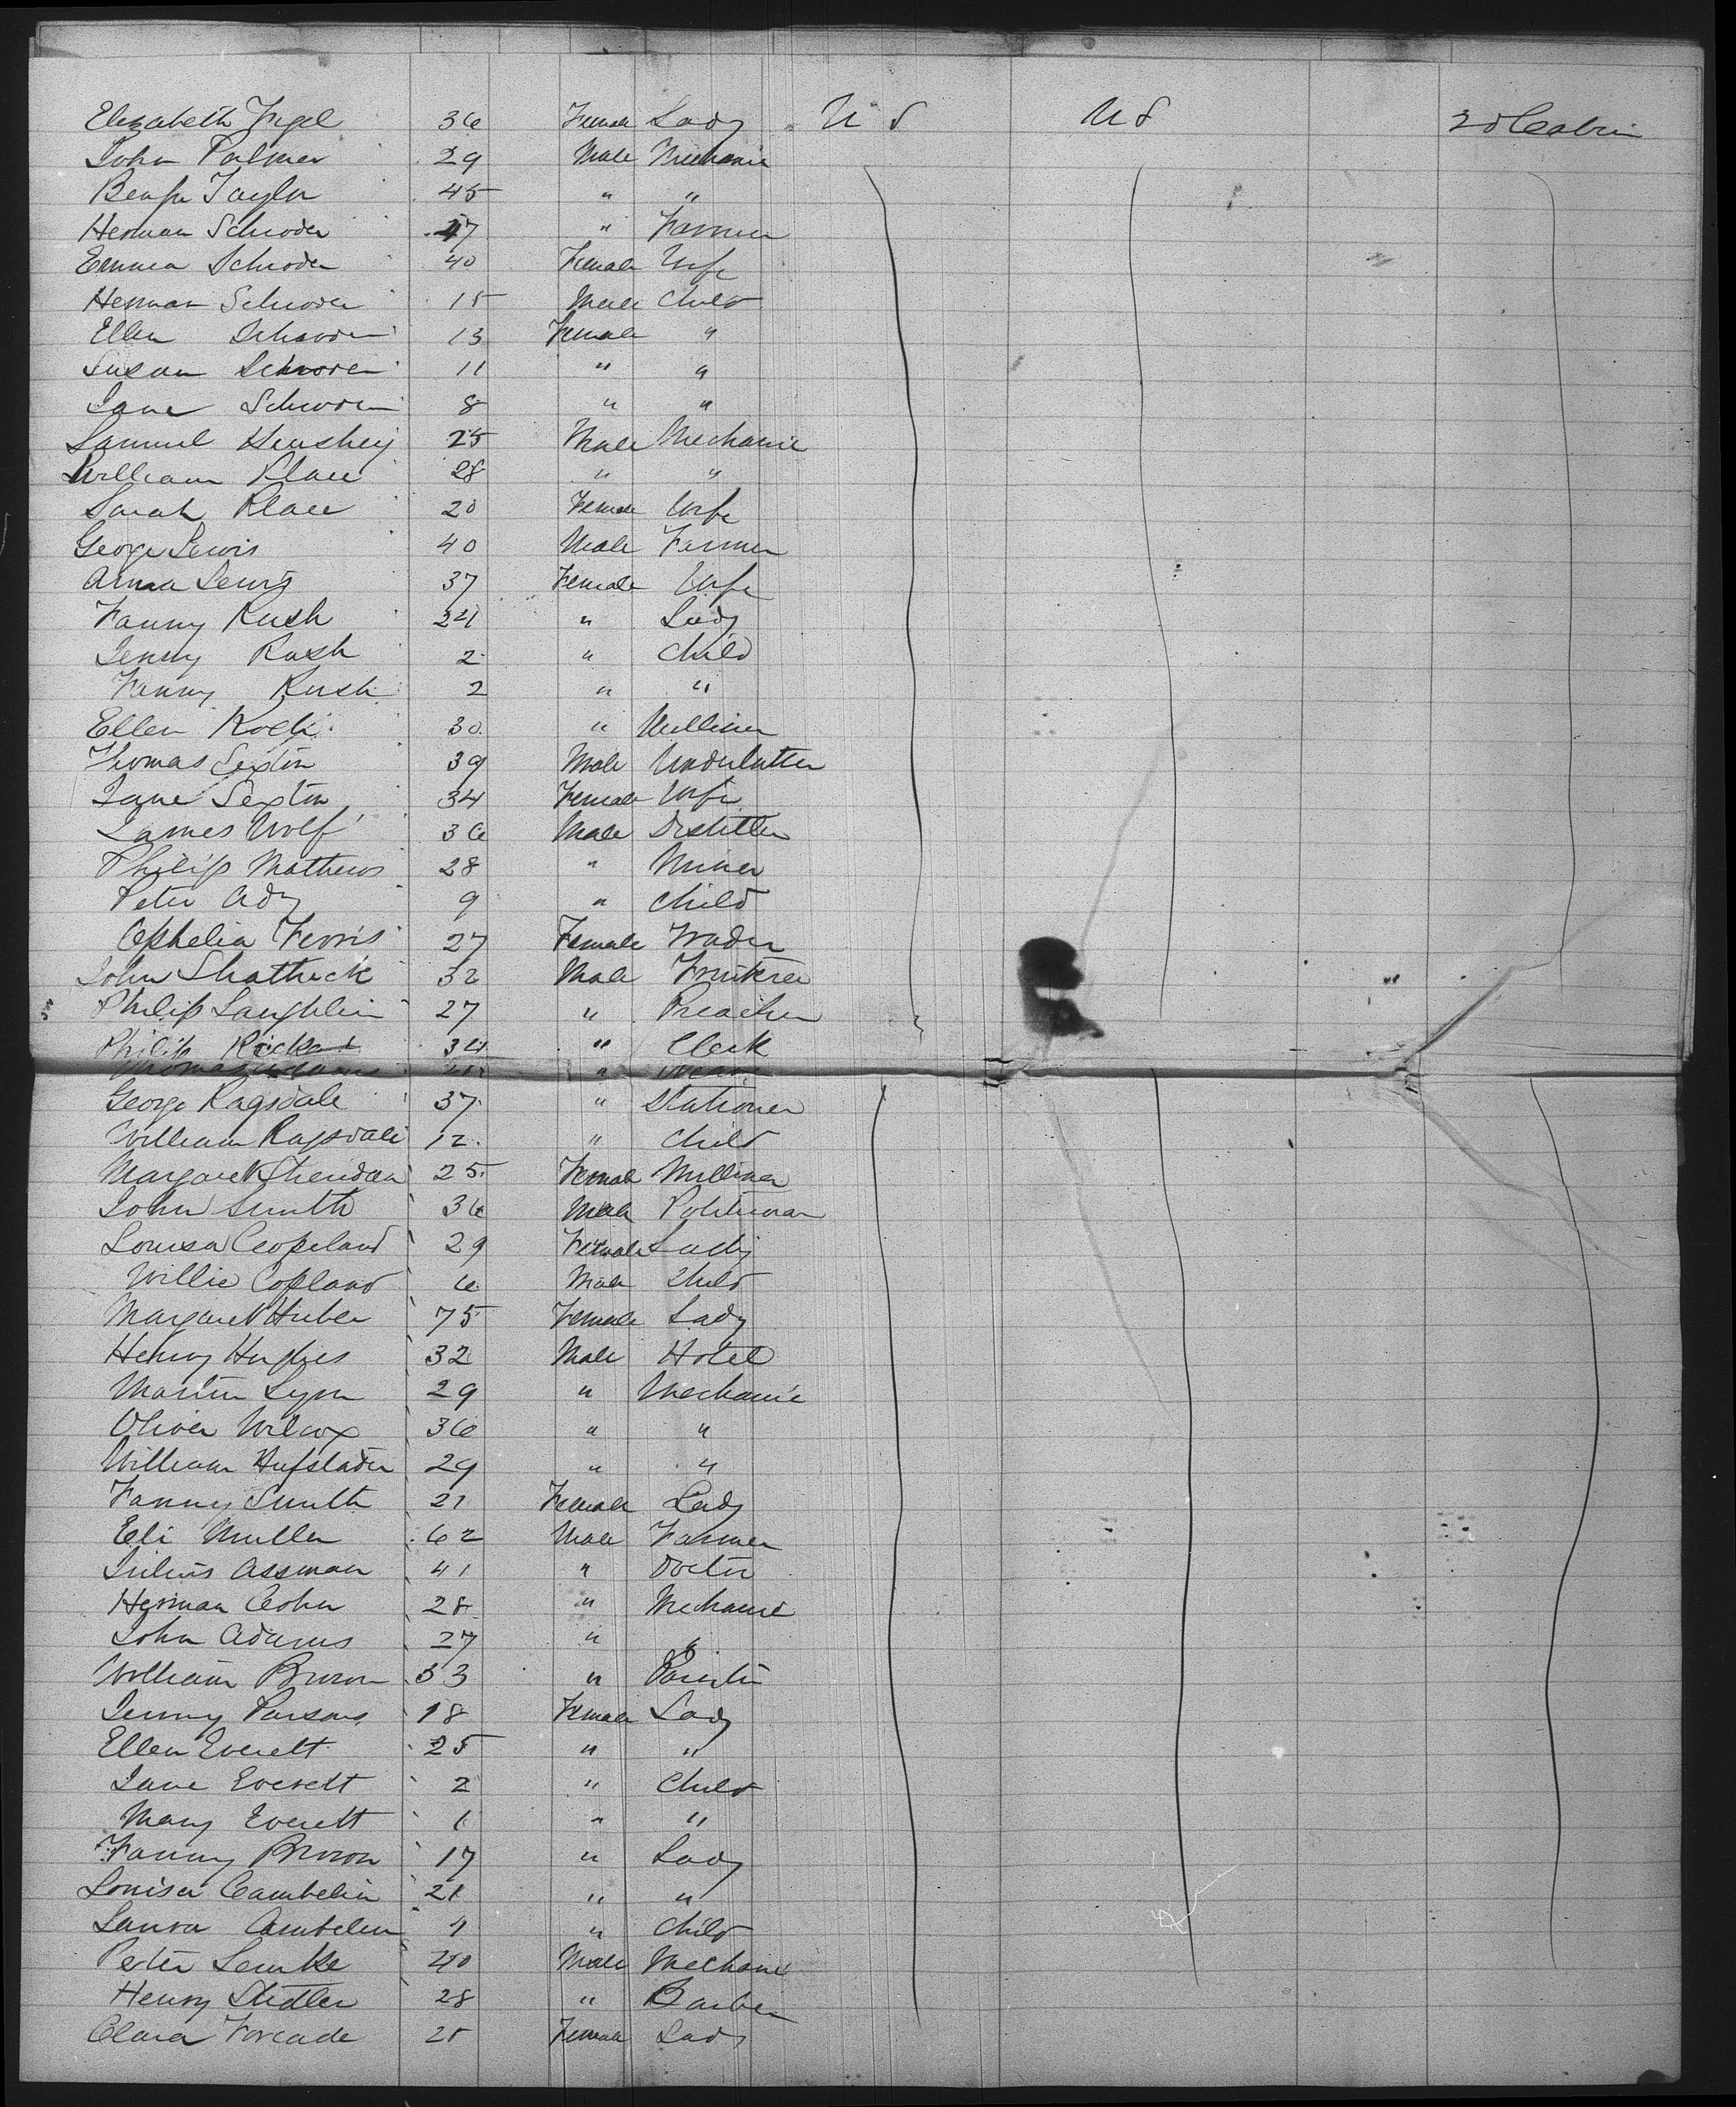 Elizabeth Fegel 36 Female Lady U S U S 2d Cabin
John Palmer 29 Male Mechanic
Benjn Taylor 45 " "
Herman Schroder 47 " Farmer
Emma Schroder 40 Female Wife
Herman Schroder 15 Male Child
Ellen Schroder 13 Female "
Susan Schroder 11 " "
Jane Schroder 8 " "
Samuel Henshey 25 Male Mechanic
William Place 28 " "
Sarah Place 20 Female Wife
George Lewis 40 Male Farmer
Anna Lewis 37 Female Wife
Fanny Rush 24 " Lady
Jenny Rush 2 " Child
Fanny Rush 2 " "
Ellen Koch 30 " Milliner
Thomas Sexton 39 Male
Jane Sexton 34 Female Wife
James Wolf 36 Male Distiller
Philip Mathews 28 " Miner
Peter Ady 9 " Child
Ophelia Ferris 27 Female Trader
John Shattuck 32 Male
Philip Laughlin 27 " Preacher
Philip Rickert 34 " Clerk
Thomas "
George Ragsdale 37 " Stationer
William Ragsdale 12 " Child
Margaret Sheridan 25 Female Milliner
John Smith 36 Male Policeman
Louisa Copeland 29 Female Lady
Willie Copland 6 Male Child
Margaret Huber 75 Female Lady
Henry Hughes 32 Male Hotel
Martin Lyon 29 " Mechanic
Oliver Wilcox 36 " "
William Hufslader 29 " "
Fanny Smith 21 Female Lady
Eli Muller 62 Male Farmer
Julius Assman 41 " Doctor
Herman Cohn 28 " Mechanic
John Adams 27 " "
William Brown 33 " Painter
Jenny Parsons 18 Female Lady
Ellen Everett 25 " "
Jane Everett 2 " Child
Mary Everett 1 " "
Fanny Brown 17 " Lady
Louisa Cambelin 21 " "
Laura Cambelin 4 " Child
Peter Lemke 40 Male Mechanic
Henry Stidler 28 " Barber
Clara Forcade 25 Female Lady